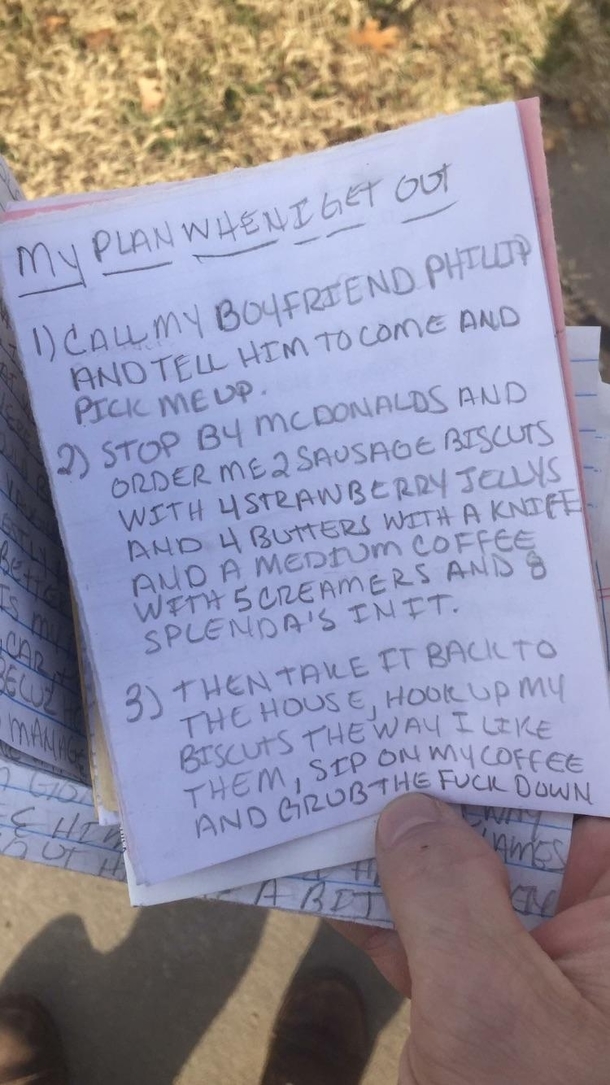 MY PLAN WHEN I GET OUT
1) CALL MY BOYFRIEND PHILLIP
AND TELL HIM TO COME AND
PICK ME UP.
2) STOP BY MCDONALDS AND
ORDER ME 2 SAUSAGE BISCUTS
WITH 4 STRAWBERRY JELLYS
AND 4 BUTTERS WITH A KNIFE
AND A MEDIUM COFFEE
WITH 5 CREAMERS AND 8
SPLENDA'S IN IT.
3) THEN TAKE IT BACK TO
THE HOUSE, HOOK UP MY
BISCUTS THE WAY I LIKE
THEM, SIP ON MY COFFEE
AND GRUB THE FUCK DOWN
CAR
MANAGE
A BIT